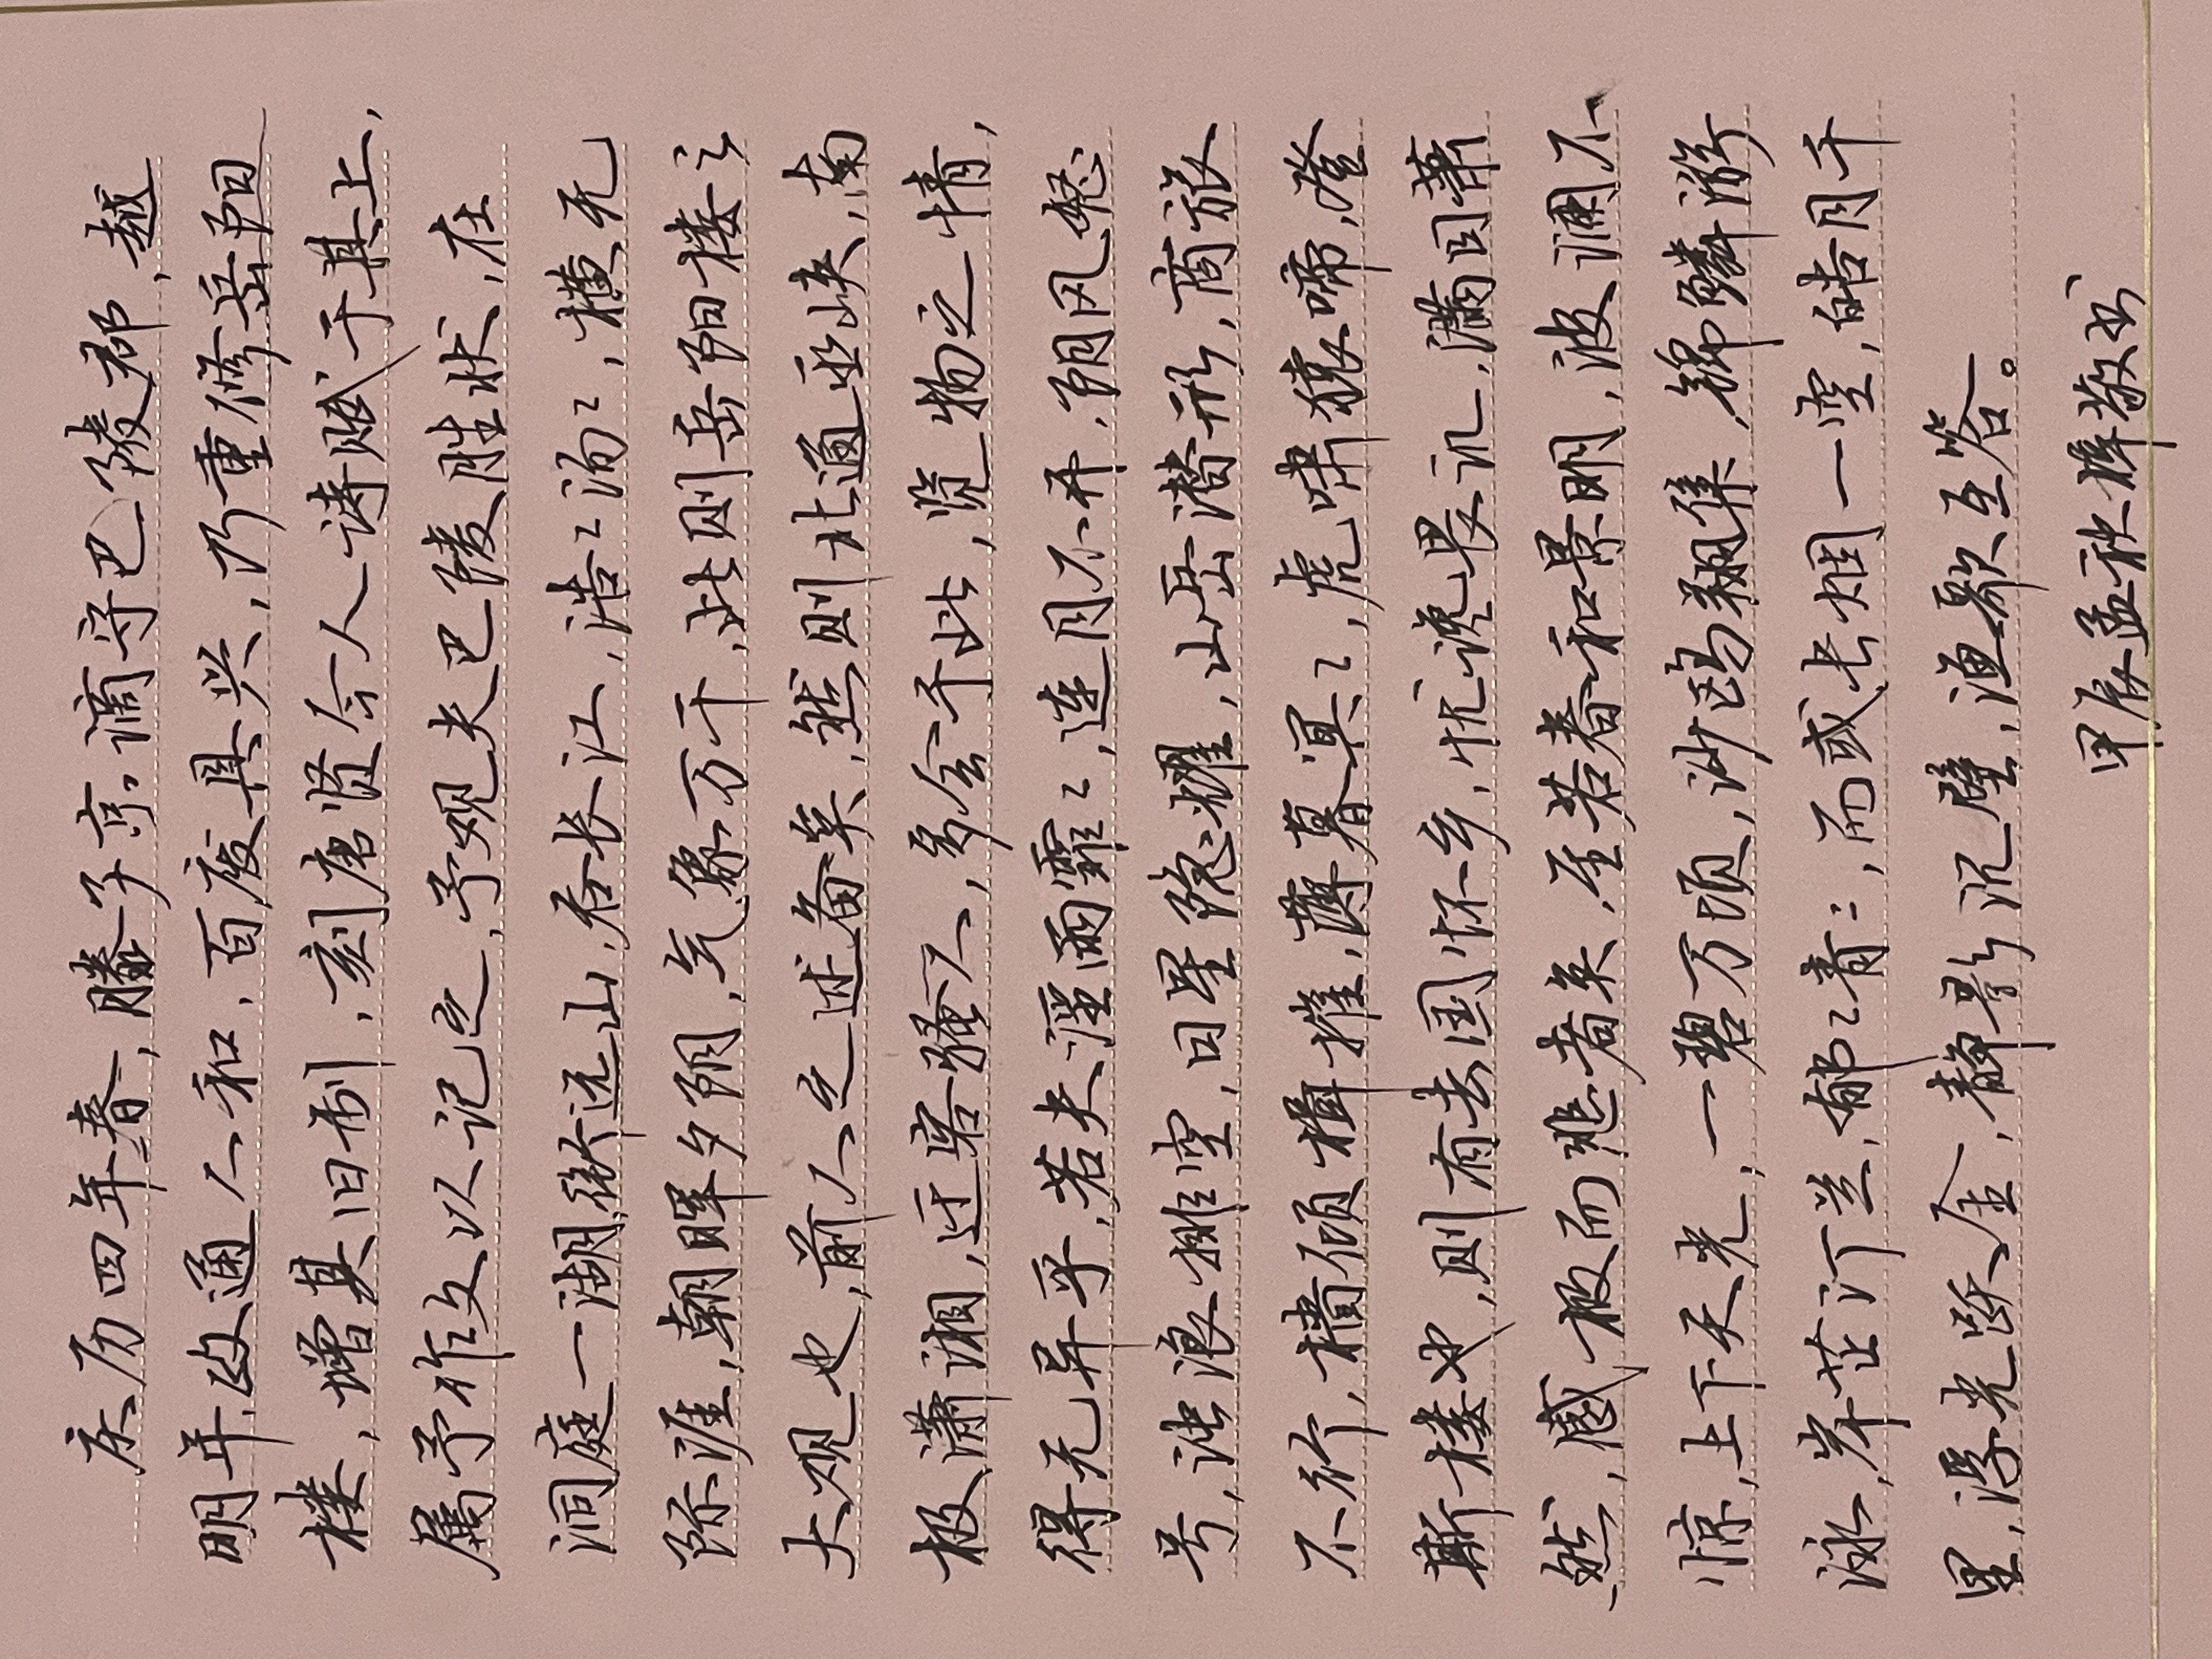 庆历四年春，滕子京谪守巴陵郡，越
明年，政通人和，百废具兴，乃重修岳阳
楼，增其旧制，刻唐贤今人诗赋于其上，
属予作文以记之，予观夫巴陵胜状，在
洞庭一湖，衔远山，吞长江，浩々汤々，横无
际涯，朝晖夕阴，气象万千，此则岳阳楼之
大观也，前人之述备矣，然则北通巫峡，南
极潇湘，迁客骚人，多会于此，览物之情，
得无异乎，若夫淫雨霏々，连月不开，阴风怒
号，浊浪排空，日星隐耀，山岳潜形，商旅
不行，樯倾楫摧，薄暮冥々，虎啸猿啼，登
斯楼也，则有去国怀乡，忧谗畏讥，满目萧
然，感极而悲者矣，至若春和景明，波澜不
惊，上下天光，一碧万顷，沙鸥翔集，锦鳞游
泳，岸芷汀兰，郁々青々，而或长烟一空，皓月千
里，浮光跃金，静影沉璧，渔歌互答。
甲辰孟秋樟敬书